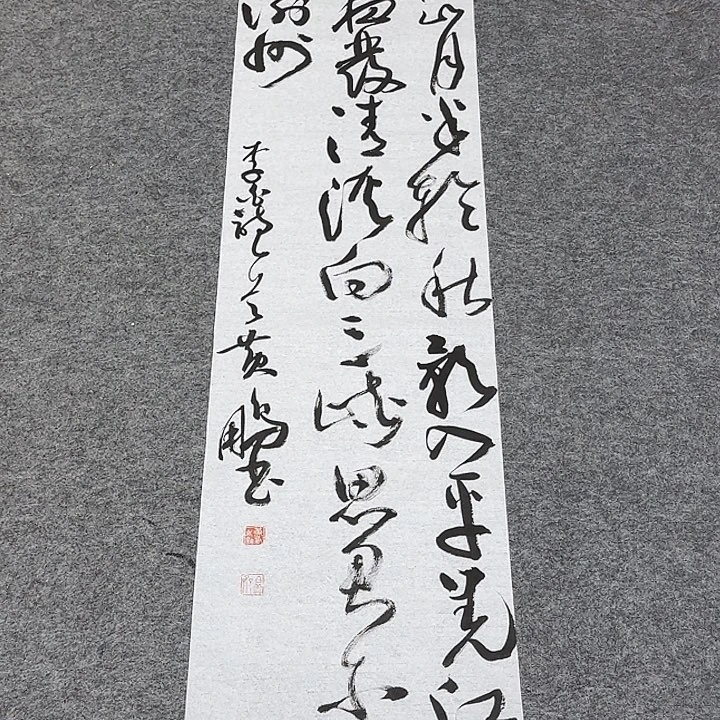 山月半輪秋影入平羌江
夜發清溪向三峽思君不
渝州
李白詩乙首黃鵬書